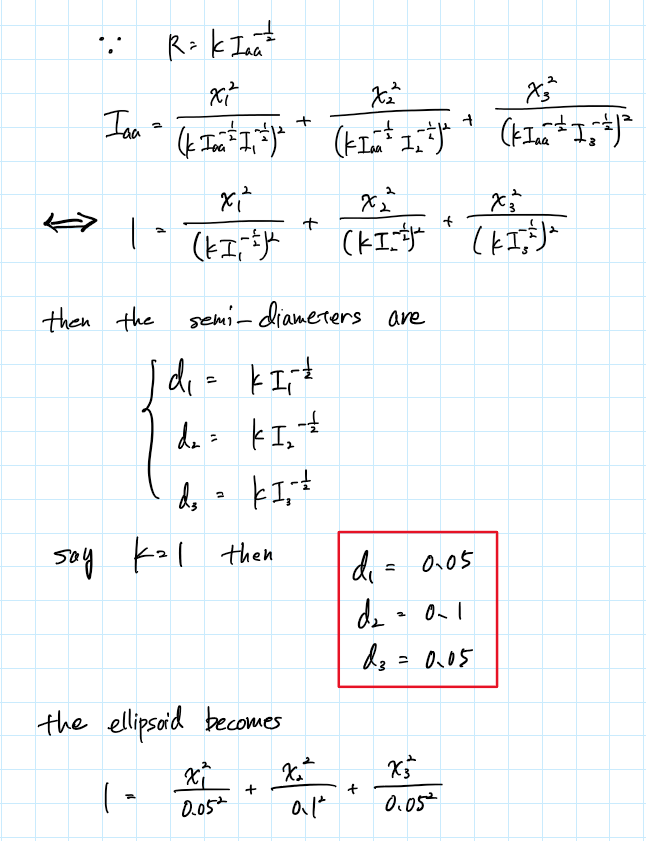 ∵ R = k I_aa^{-1/2}
I_aa = x_1^2 / (k I_aa^{-1/2} I_1^{-1/2})^2 + x_2^2 / (k I_aa^{-1/2} I_2^{-1/2})^2 + x_3^2 / (k I_aa^{-1/2} I_3^{-1/2})^2
⟺ 1 = x_1^2 / (k I_1^{-1/2})^2 + x_2^2 / (k I_2^{-1/2})^2 + x_3^2 / (k I_3^{-1/2})^2
then the semi-diameters are
{ d_1 = k I_1^{-1/2}
d_2 = k I_2^{-1/2}
d_3 = k I_3^{-1/2}
say k=1 then
d_1 = 0.05
d_2 = 0.1
d_3 = 0.05
the ellipsoid becomes
1 = x_1^2 / 0.05^2 + x_2^2 / 0.1^2 + x_3^2 / 0.05^2